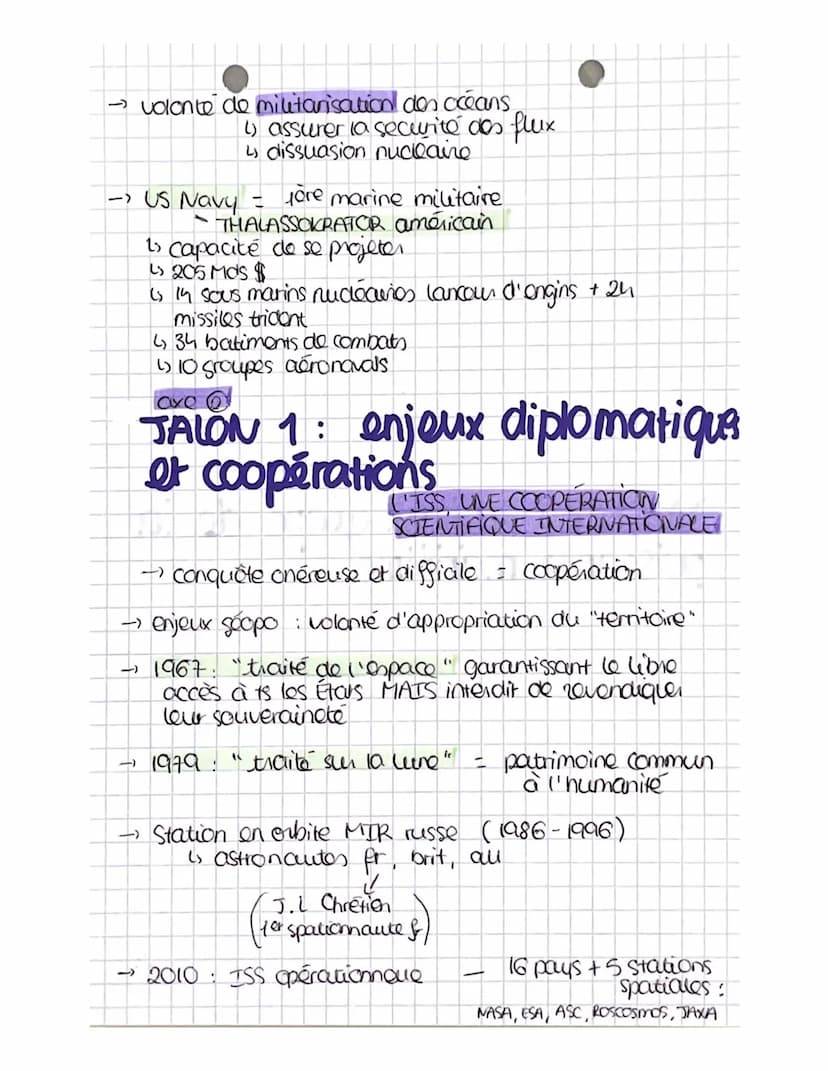 → volonté de militarisation des océans
↳ assurer la sécurité des flux
↳ dissuasion nucléaire
→ US Navy = 1ère marine militaire
~ THALASSOKRATOR américain
↳ capacité de se projeter
↳ 205 Mds $
↳ 14 sous marins nucléaires lanceurs d'engins + 24
missiles trident
↳ 34 batiments de combats
↳ 10 groupes aéronavals
axe ②
JALON 1 : enjeux diplomatiques
et coopérations
L'ISS, UNE COOPÉRATION
SCIENTIFIQUE INTERNATIONALE
→ conquête onéreuse et difficile = coopération
→ enjeux géopo : volonté d'appropriation du "territoire"
→ 1967 : "traité de l'espace" garantissant le libre
accès à ts les États MAIS interdit de revendiquer
leur souveraineté
→ 1979 : "traité sur la lune" = patrimoine commun
à l'humanité
→ Station en orbite MIR russe (1986-1996)
↳ astronautes fr, brit, au
(J.L Chrétien
1er spationnaute fr)
→ 2010 : ISS opérationnelle — 16 pays + 5 stations
spatiales :
NASA, ESA, ASC, ROSCOSMOS, JAXA